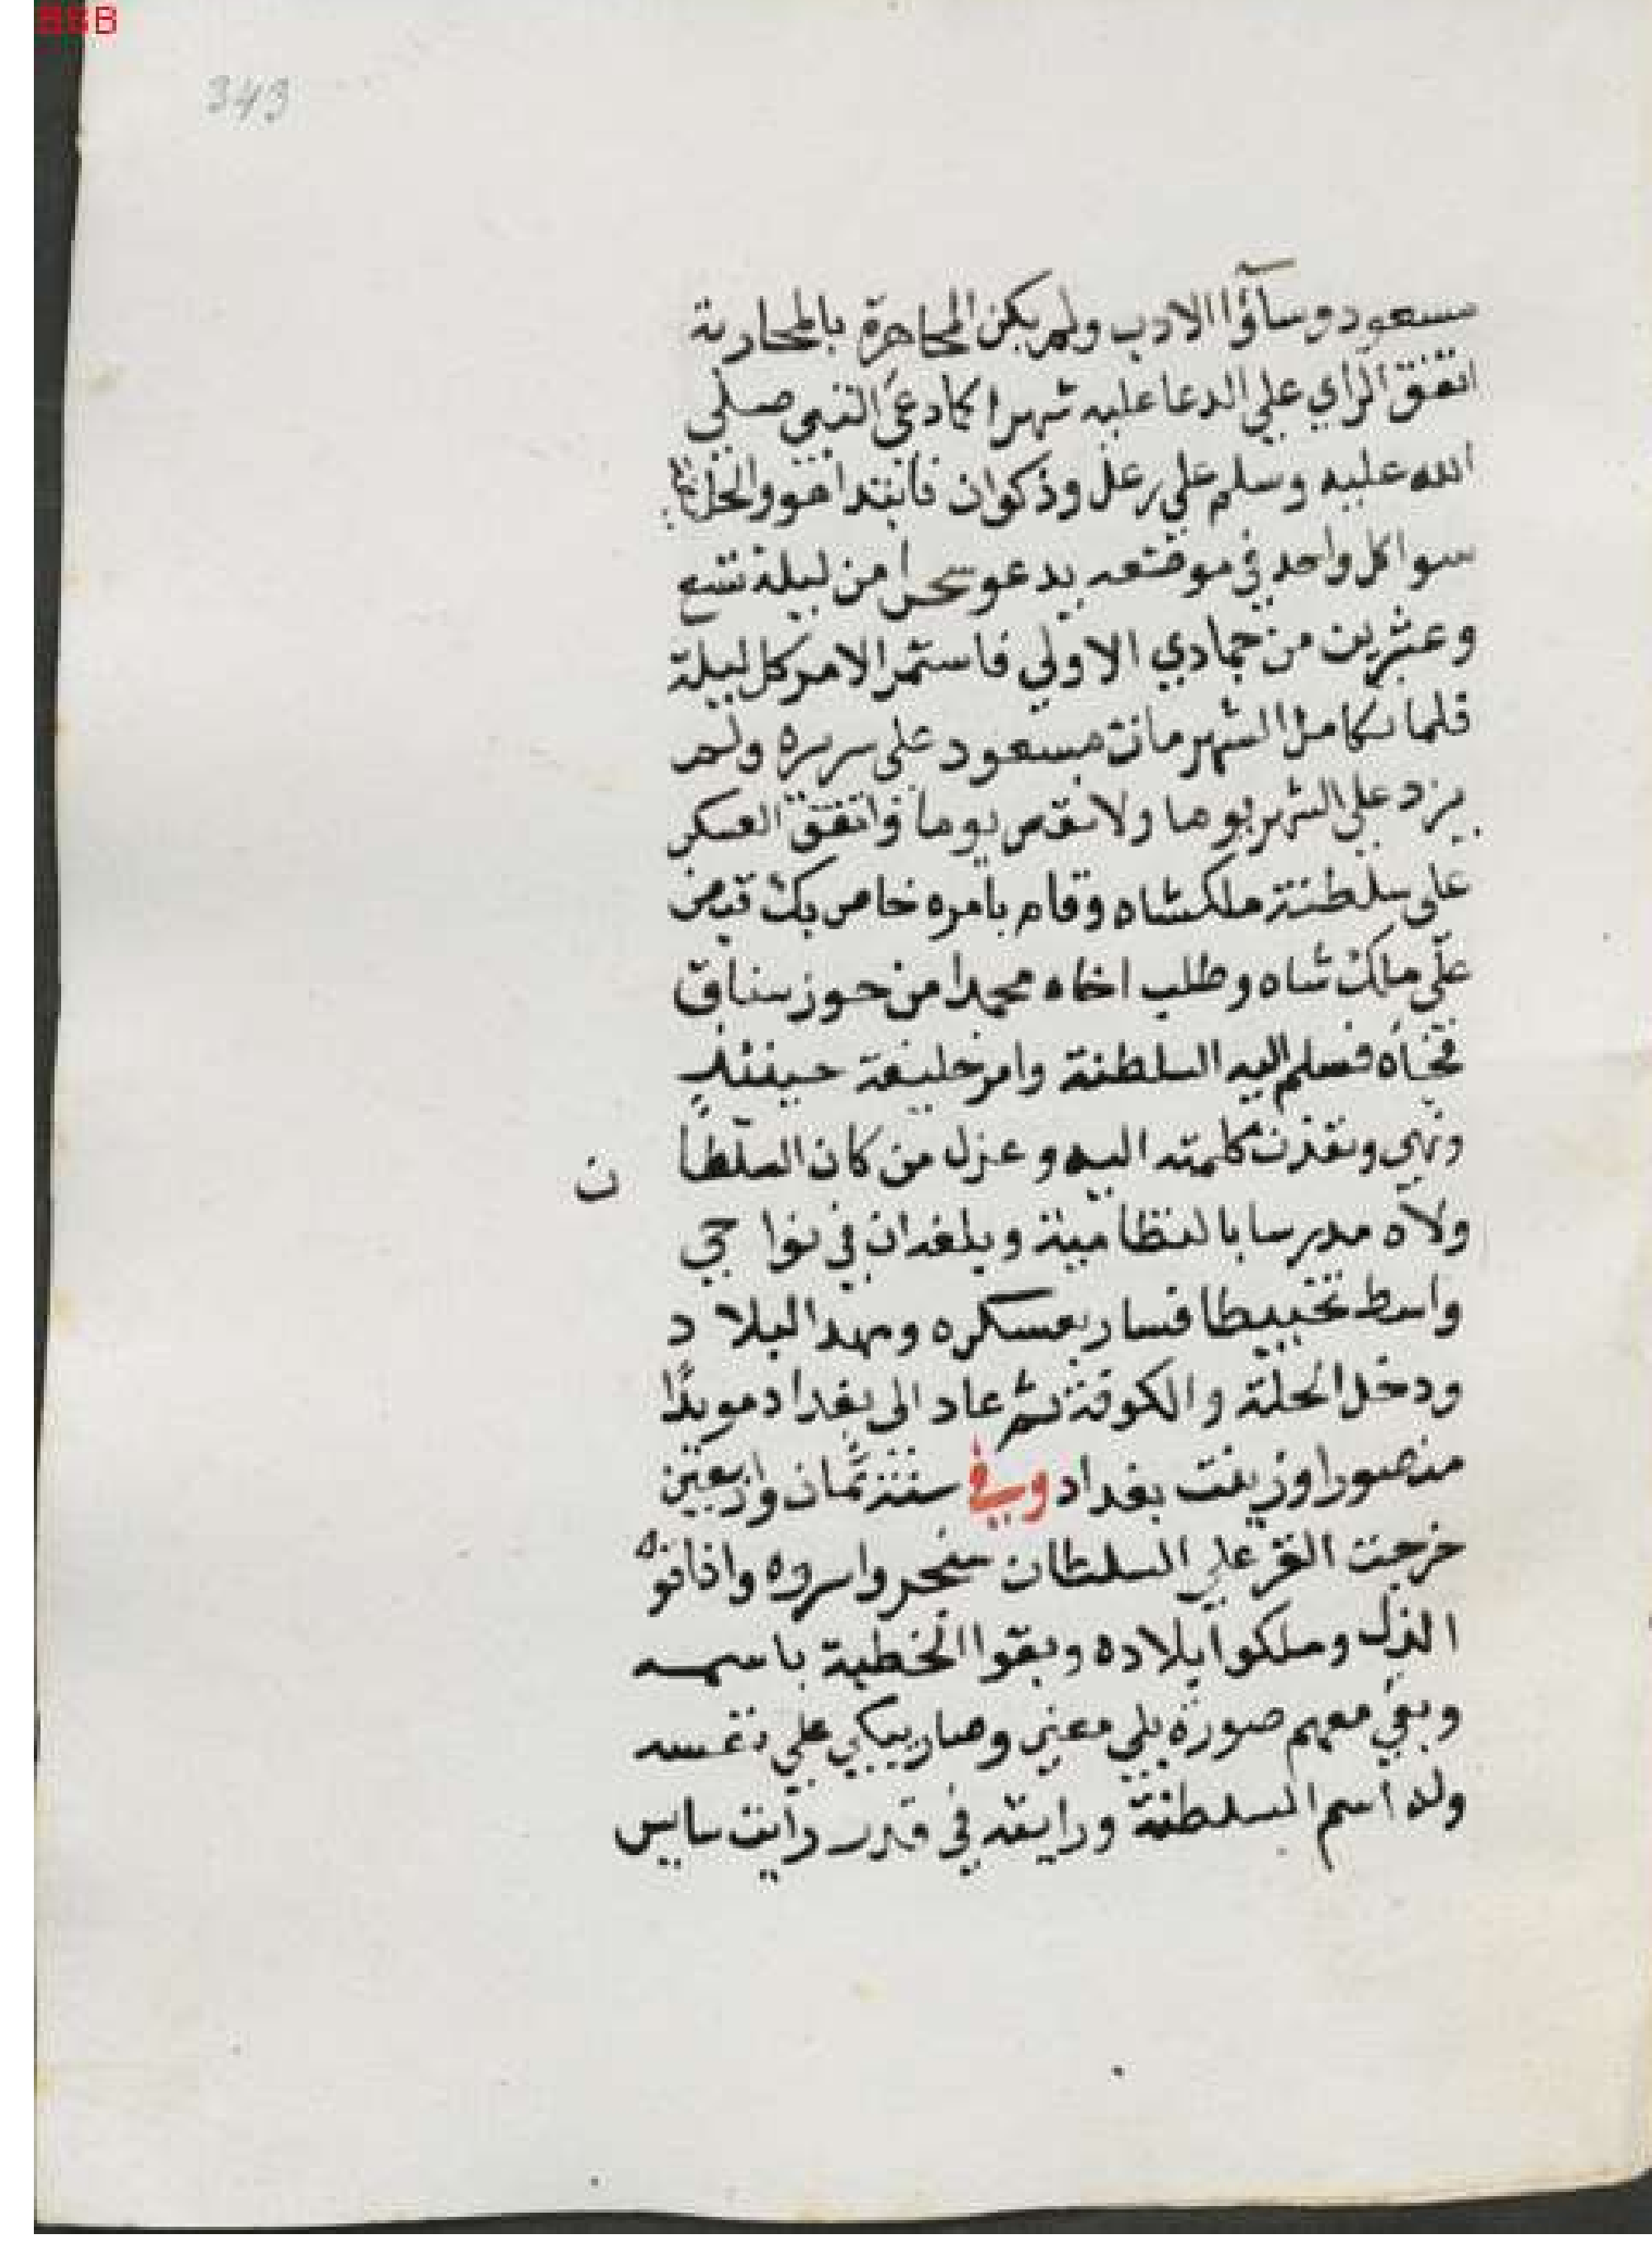 343
مسعود وسآؤا الادب ولم يكن المجاهرة بالمحاربة
اتفق الراي علي الدعا عليه شهرا كما دعى النبي صلي
الله عليه وسلم علي رعل وذكوان فابتدا هو والخليفة
سوا كل واحد في موضعه يدعو سحرا من ليلة تسع
وعشرين من جمادي الاولي فاستمر الامر كل ليلة
فلما تكامل الشهر مات مسعود على سريره ولم
يزد علي الشهر يوما ولا نقص يوما واتفق العسكر
على سلطنة ملكشاه وقام بامره خاص بك قبض
على ملك شاه وطلب اخاه محمدا من حوزستاق
فجآه فسلم اليه السلطنة وامر خليفة حينئذ
ونهي ونفذت كلمته اليه وعزل من كان السلطا ن
ولاه مدرسا بالنظامية وبلغه ان في نواحي
واسط تخبيطا فسار بعسكره ومهد البلاد
ودخل الحلة والكوفة ثم عاد الى بغداد مويدا
منصورا وزينت بغداد وفي سنة ثمان واربعين
خرجت الغز علي السلطان سنجر واسروه واذاقوه
الذل وملكوا بلاده وبقوا الخطبة باسمه
وبقي معهم صورة بلي معني وصار يبكي علي نفسه
وله اسم السلطنة وراتبه في قدر راتب سايس